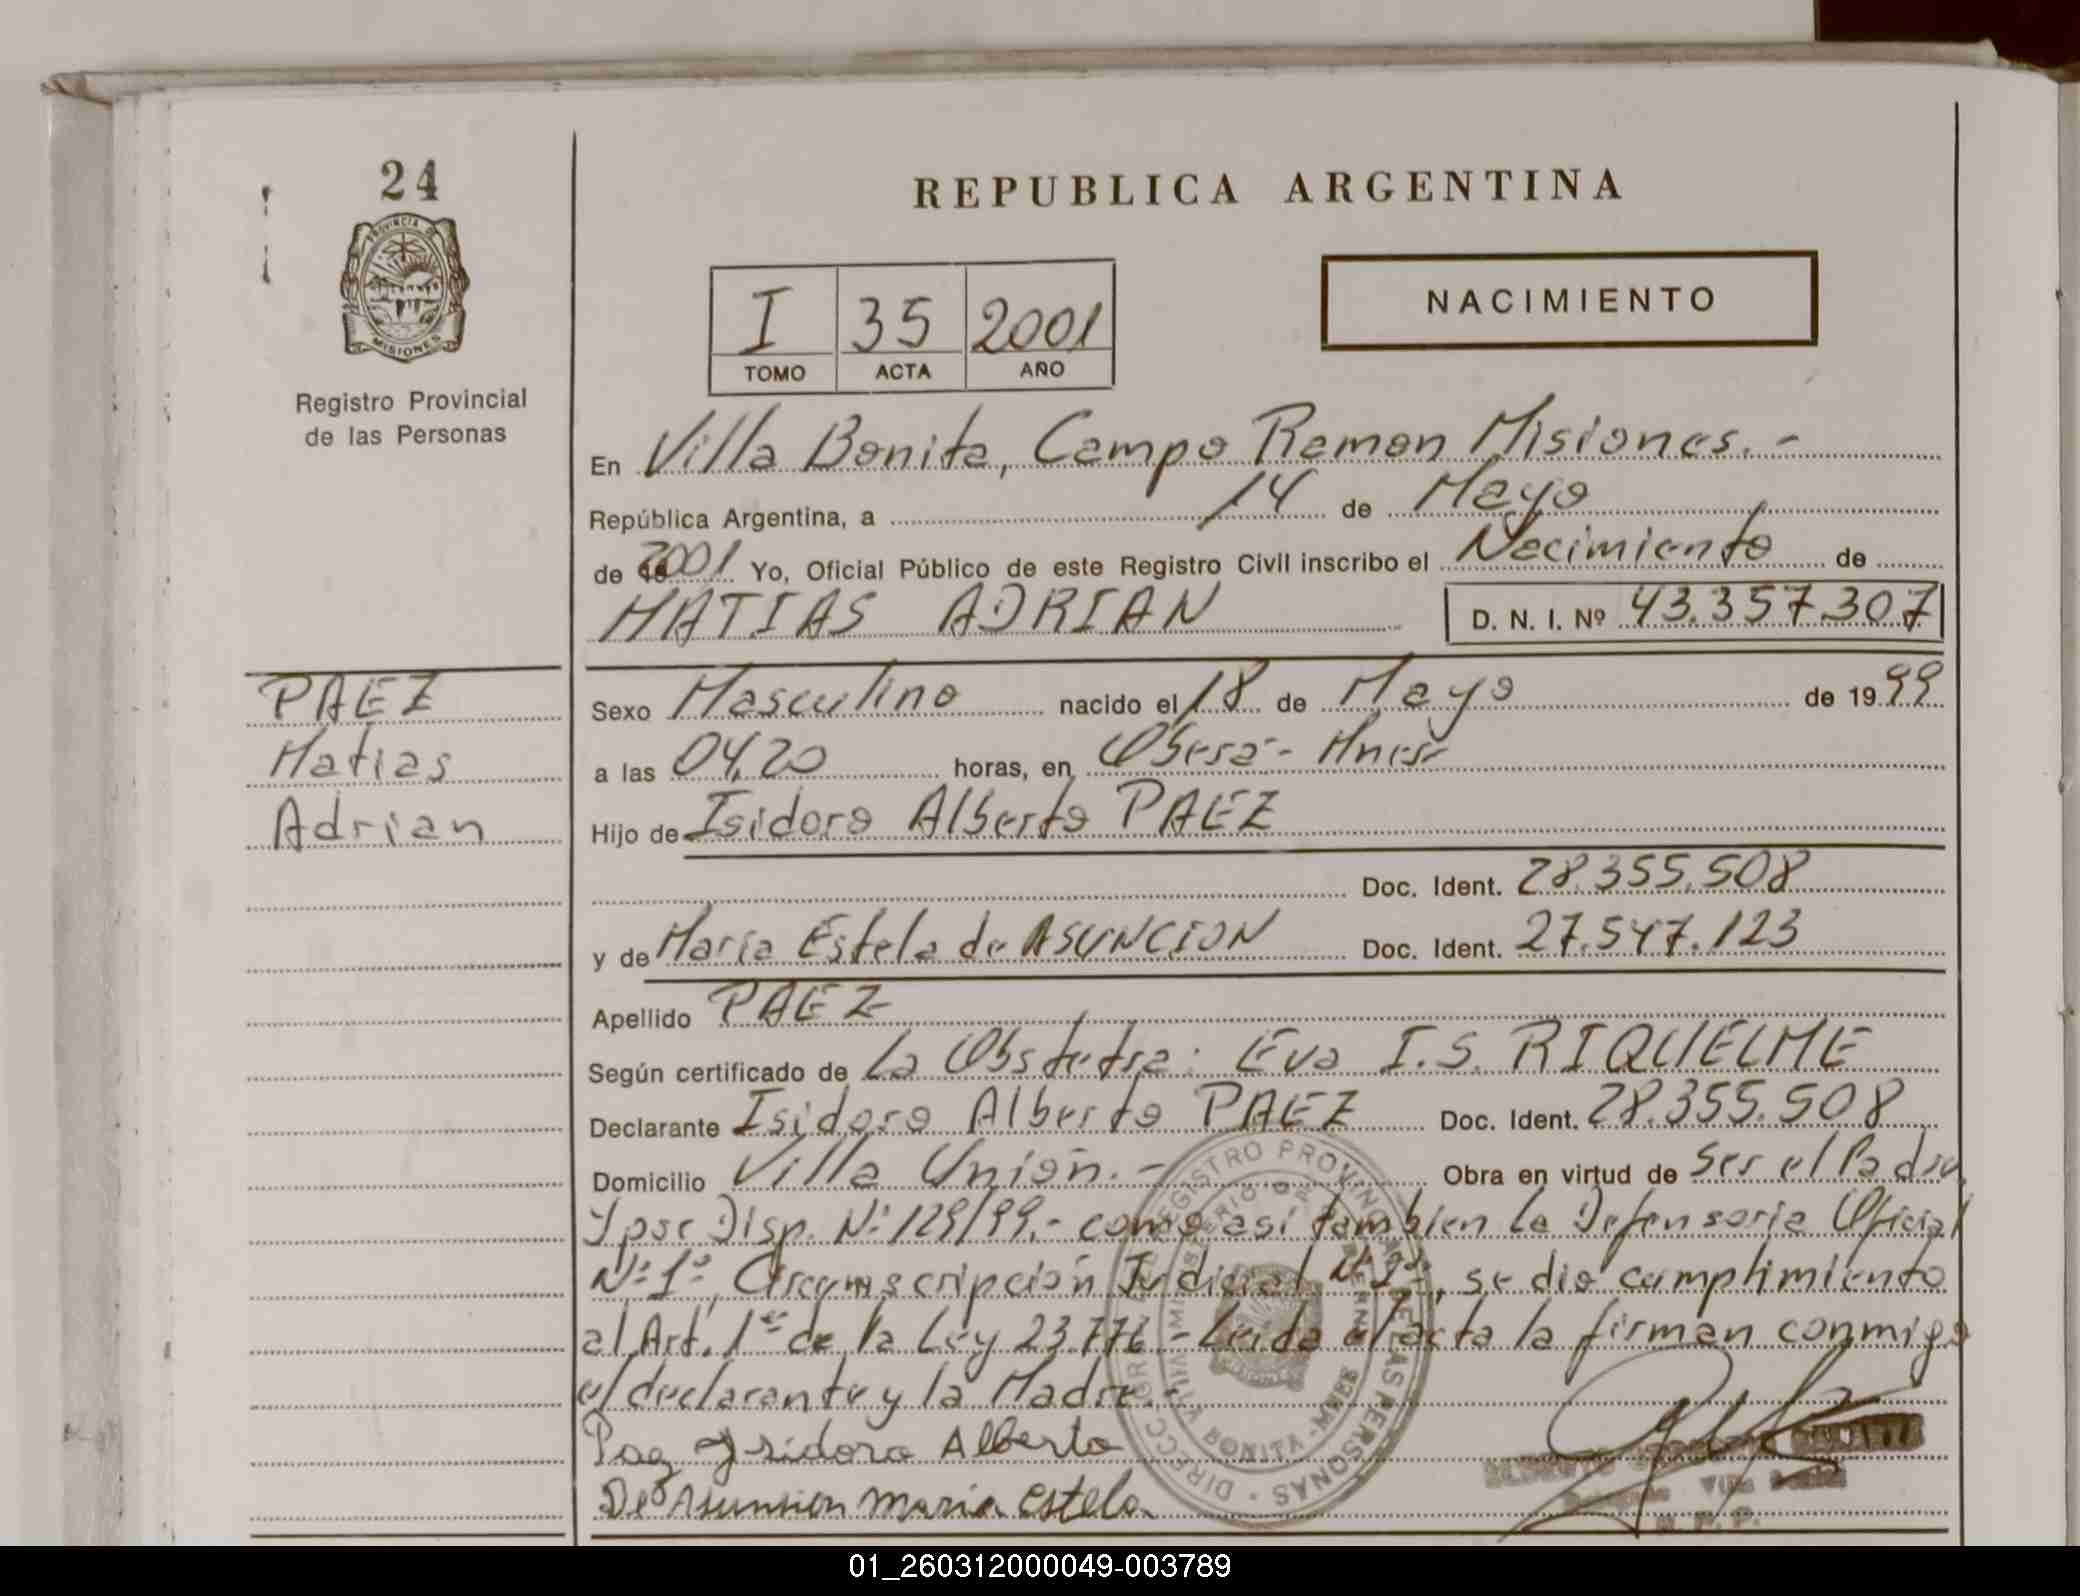 24
PROVINCIA DE
MISIONES
Registro Provincial
de las Personas
REPUBLICA ARGENTINA
I 35 2001
TOMO ACTA AÑO
NACIMIENTO
En Villa Bonita, Campo Ramon Misiones.-
República Argentina, a 14 de Mayo
de 2001 Yo, Oficial Público de este Registro Civil inscribo el Nacimiento de
MATIAS ADRIAN D. N. I. Nº 43.357.307
PAEZ
Matias
Adrian
Sexo Masculino nacido el 18 de Mayo de 1999
a las 04,20 horas, en Oberá - Mnes
Hijo de Isidoro Alberto PAEZ
Doc. Ident. 28.355.508
y de Maria Estela de ASUNCION Doc. Ident. 27.547.123
Apellido PAEZ
Según certificado de La Obstetra: Eva I.S. RIQUELME
Declarante Isidoro Alberto PAEZ Doc. Ident. 28.355.508
Domicilio Villa Unión.- Obra en virtud de Ser el Padre
Y por Disp. Nº 129/99.- como asi tambien la Defensoria Oficial
Nº 1º, Circunscripción Judicial Nº 2º, se dio cumplimiento
al Art. 1º de la Ley 23.776.- Leida el acta la firman conmigo
el declarante y la Madre.-
Paez Isidoro Alberto
De Asuncion maria estela
DIRECC. GR. DEL REGISTRO PROVINCIAL DE LAS PERSONAS
VILLA BONITA - MNES
R. P. P.
01_260312000049-003789